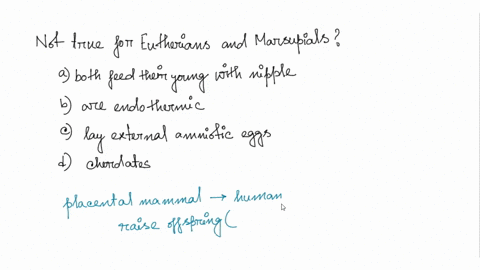 Not true for Eutherians and Marsupials?
a) both feed their young with nipple
b) are endothermic
c) lay external amniotic eggs
d) chordates
placental mammal → human
raise offspring (